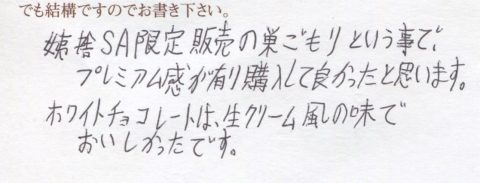 でも結構ですのでお書き下さい。
姨捨SA限定販売の巣ごもりという事で、
プレミアム感が有り購入して良かったと思います。
ホワイトチョコレートは、生クリーム風の味で
おいしかったです。